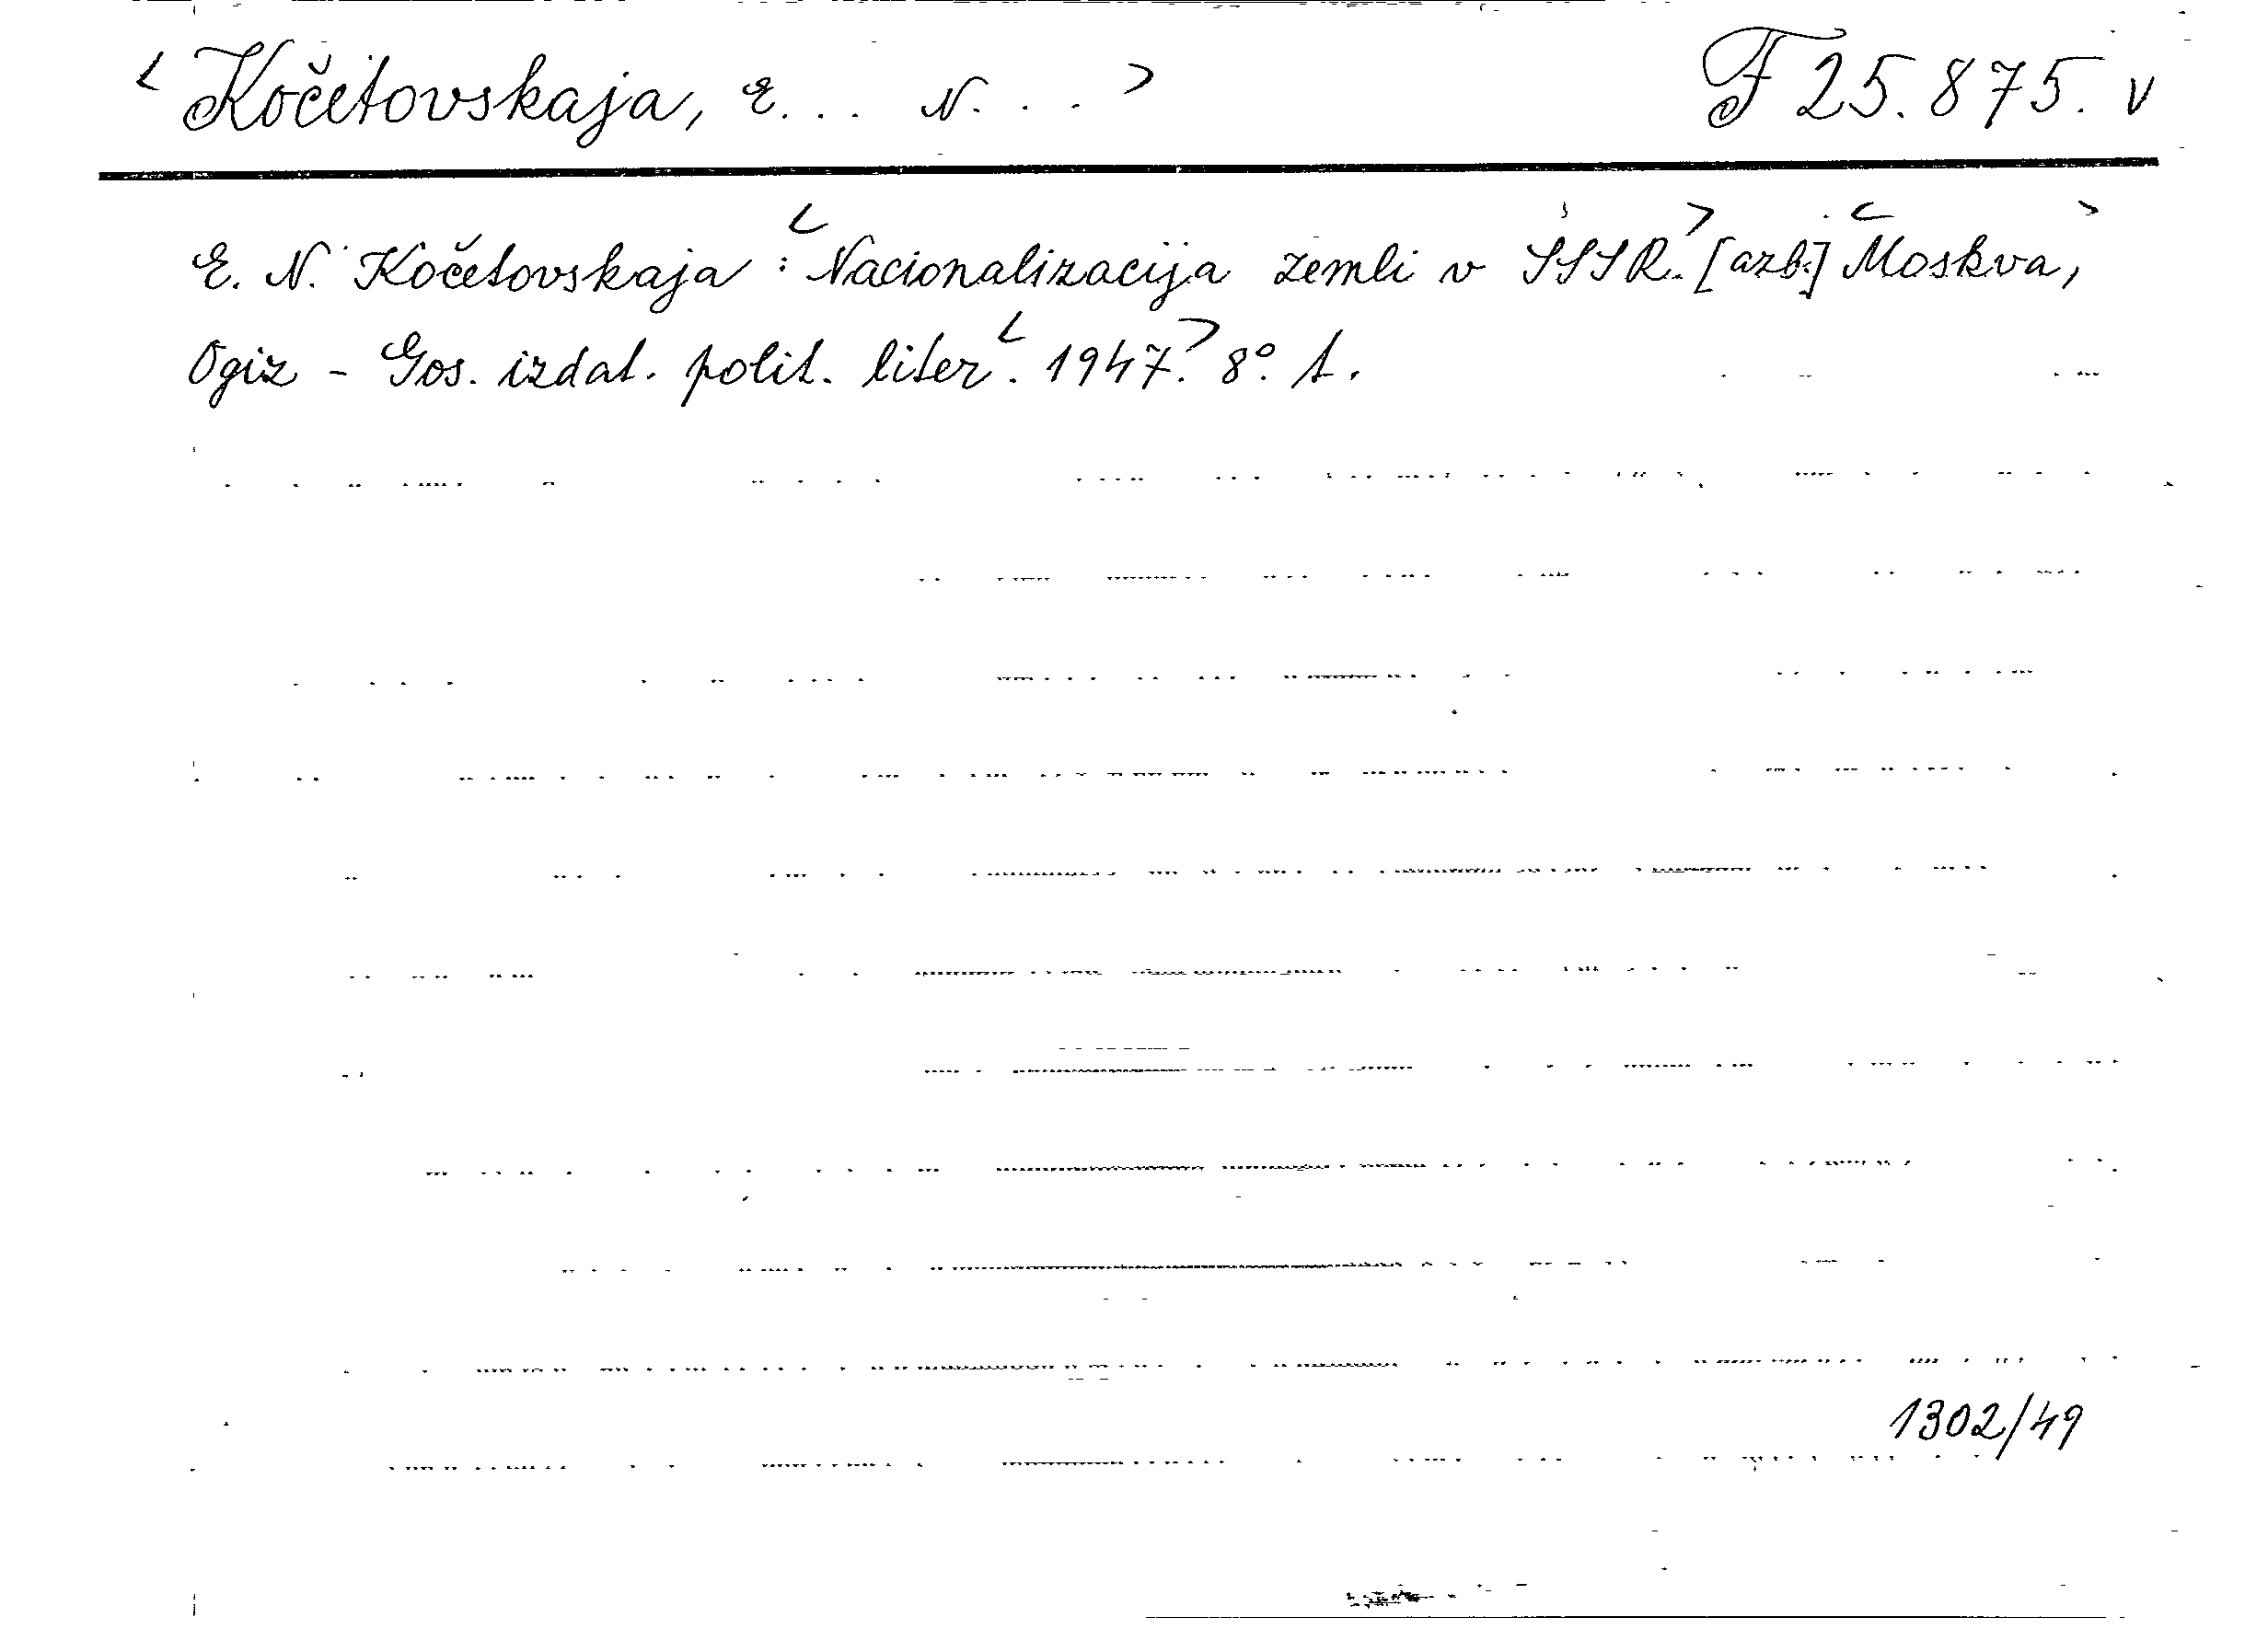 < Kočetovskaja, E... N... > F 25.875. v
E. N. Kočetovskaja : <Nacionalizacija zemli v SSSR.> [azb.] <Moskva,>
Ogiz - Gos. izdat. polit. liter. <1947.> 8° 1.
1302/49